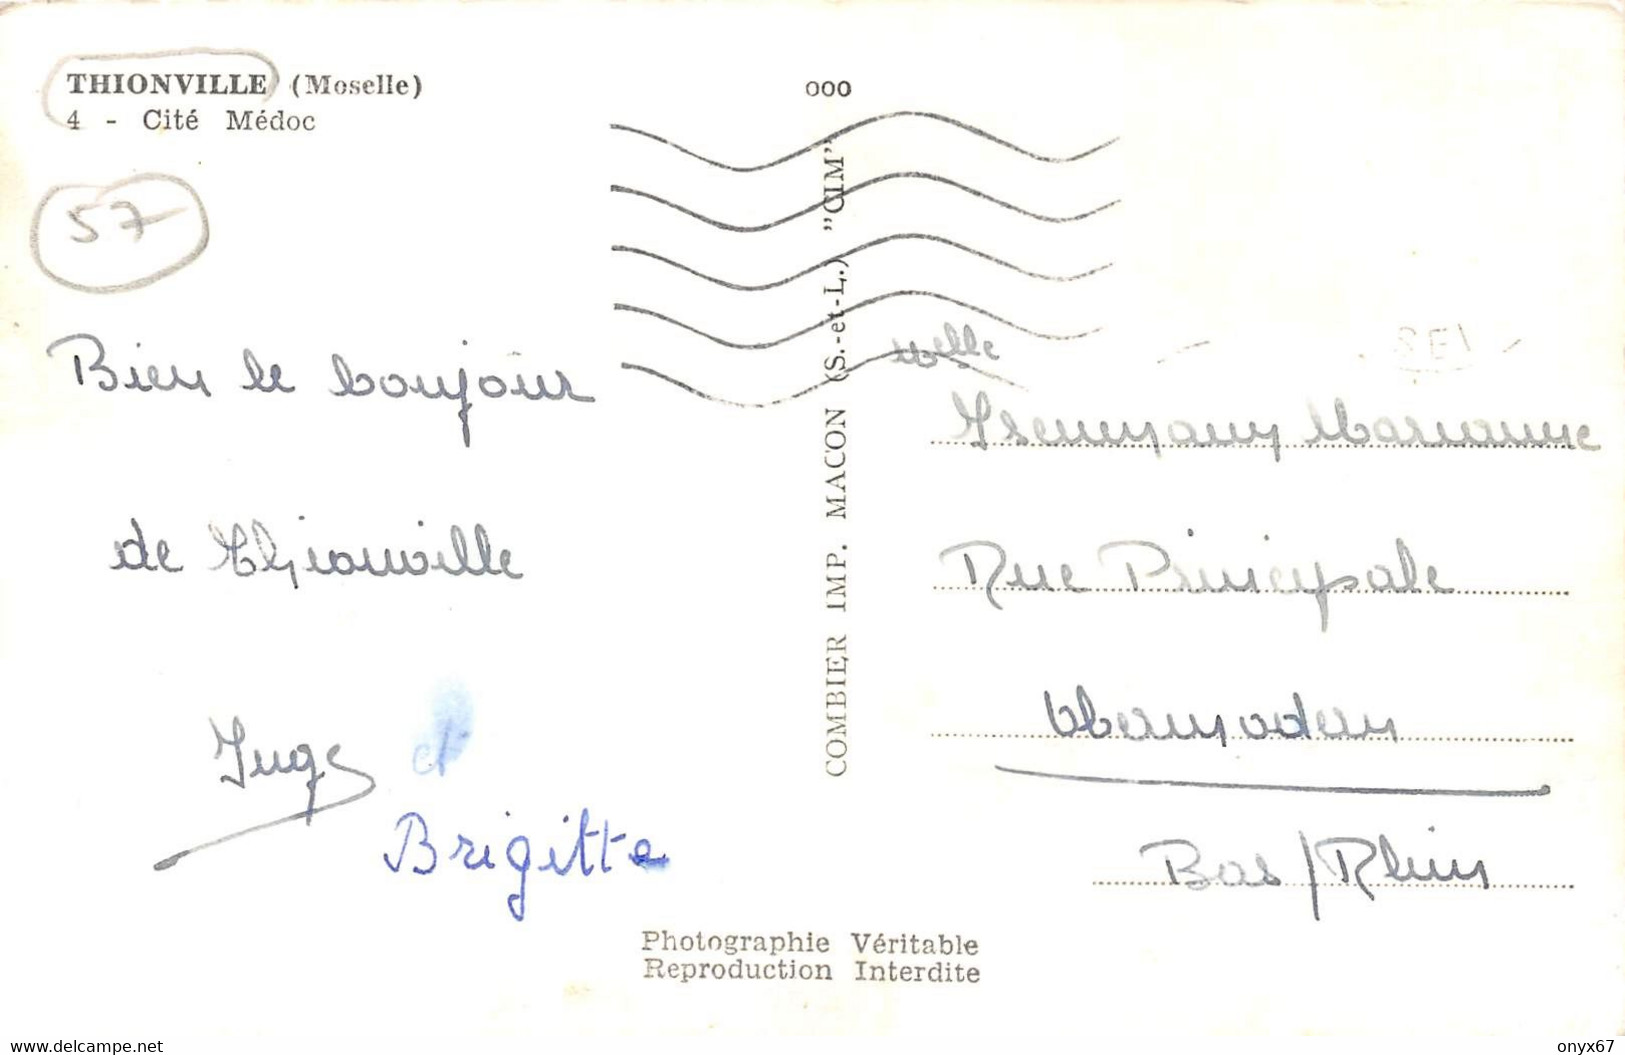 THIONVILLE (Moselle)
4 - Cité Médoc
57
000
Bien le bonjour
de Thionville
Inge et
Brigitte
COMBIER IMP. MACON (S.-et-L.) "CIM"
Melle
Isenmann Marianne
Rue Principale
Obermodern
Bas/Rhin
Photographie Véritable
Reproduction Interdite
www.delcampe.net
onyx67